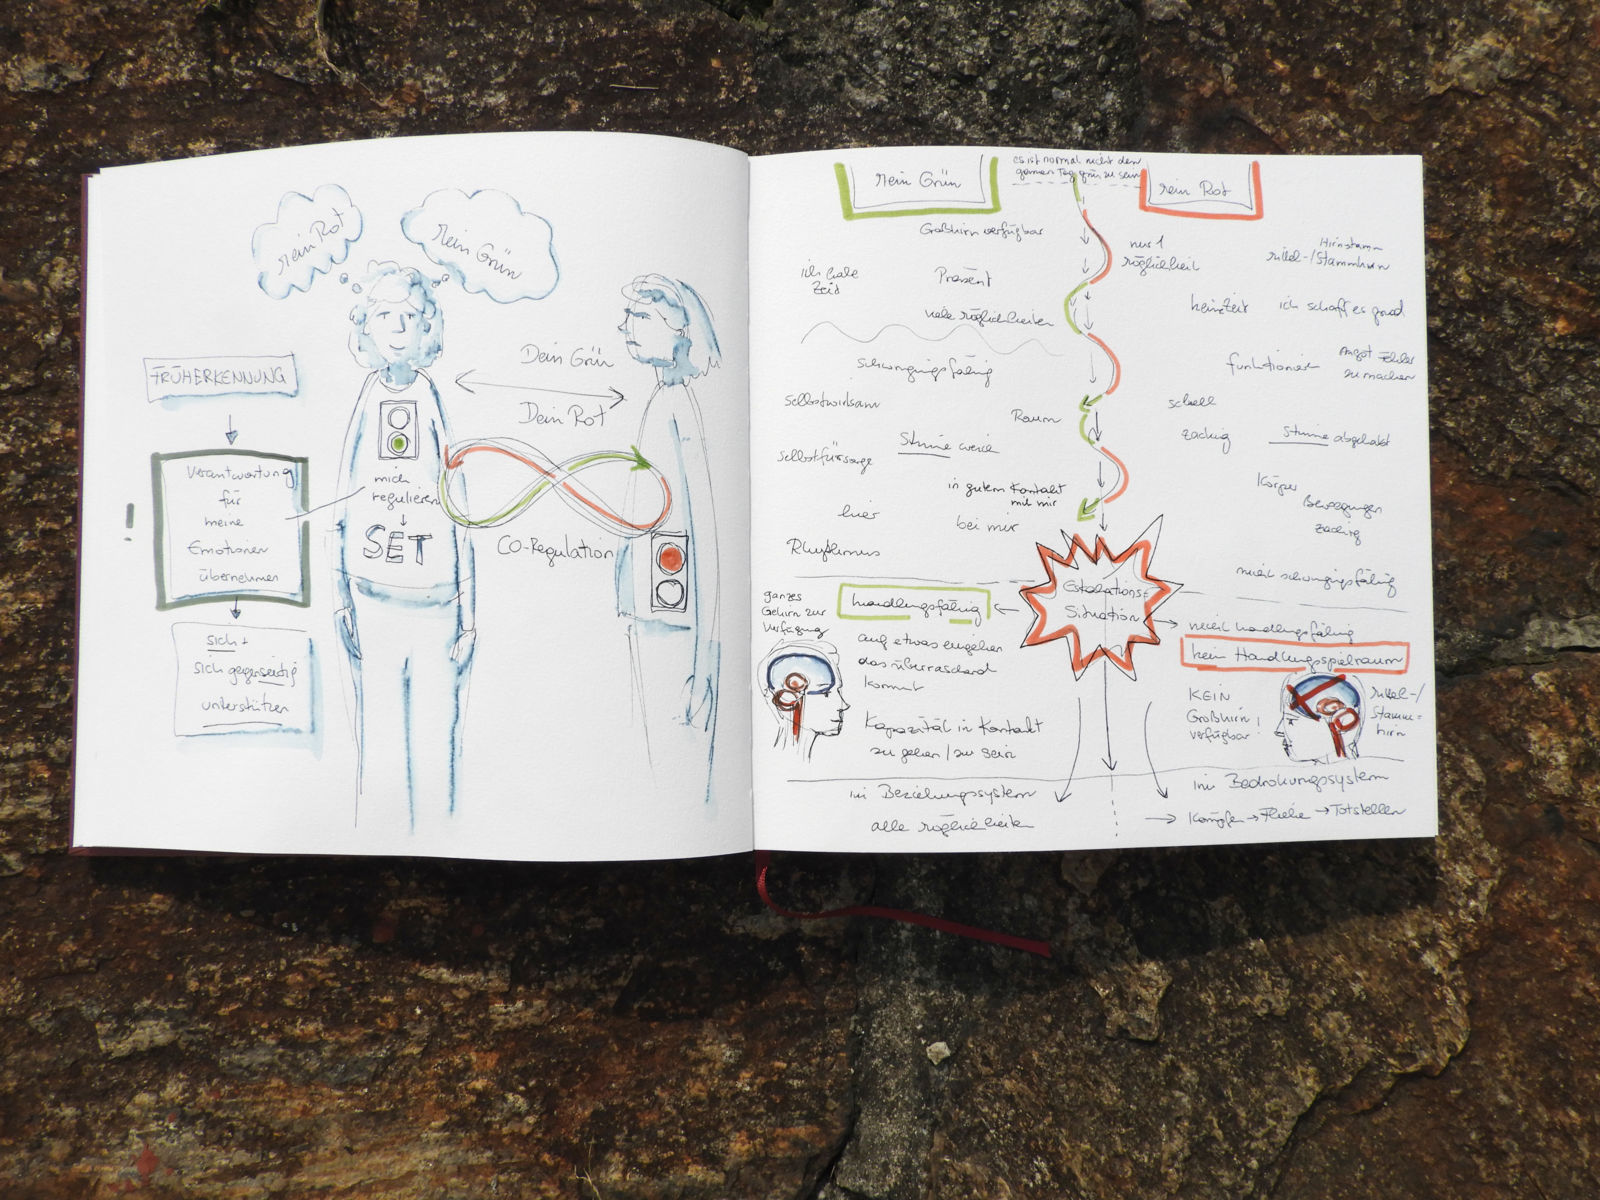 mein Rot
mein Grün
FRÜHERKENNUNG
Verantwortung
für
meine
Emotionen
übernehmen
!
sich +
sich gegenseitig
unterstützen
mich
regulieren
SET
Dein Grün
Dein Rot
CO-Regulation
mein Grün
es ist normal nicht den
ganzen Tag grün zu sein
mein Rot
Großhirn verfügbar
ich habe
Zeit
Präsent
viele Möglichkeiten
schwingungsfähig
selbstwirksam
Raum
Stimme weich
selbstfürsorge
in gutem Kontakt
mit mir
hier
bei mir
Rhythmus
nur 1
Möglichkeit
Hirnstamm
Mittel-/Stammhirn
keine Zeit
ich schaff es grad
funktionier
Angst Fehler
zu machen
schnell
zackig
Stimme abgehakt
Körper
Bewegungen
zackig
nicht schwingungsfähig
Eskalations=
Situation
ganzes
Gehirn zur
Verfügung
handlungsfähig
auf etwas eingehen
das überraschend
kommt
Kapazität in Kontakt
zu gehen / zu sein
im Beziehungssystem
alle Möglichkeiten
nicht handlungsfähig
kein Handlungsspielraum
KEIN
Großhirn !
verfügbar
Mittel-/
Stamm=
hirn
im Bedrohungssystem
→ Kämpfen → Fliehe → Totstellen